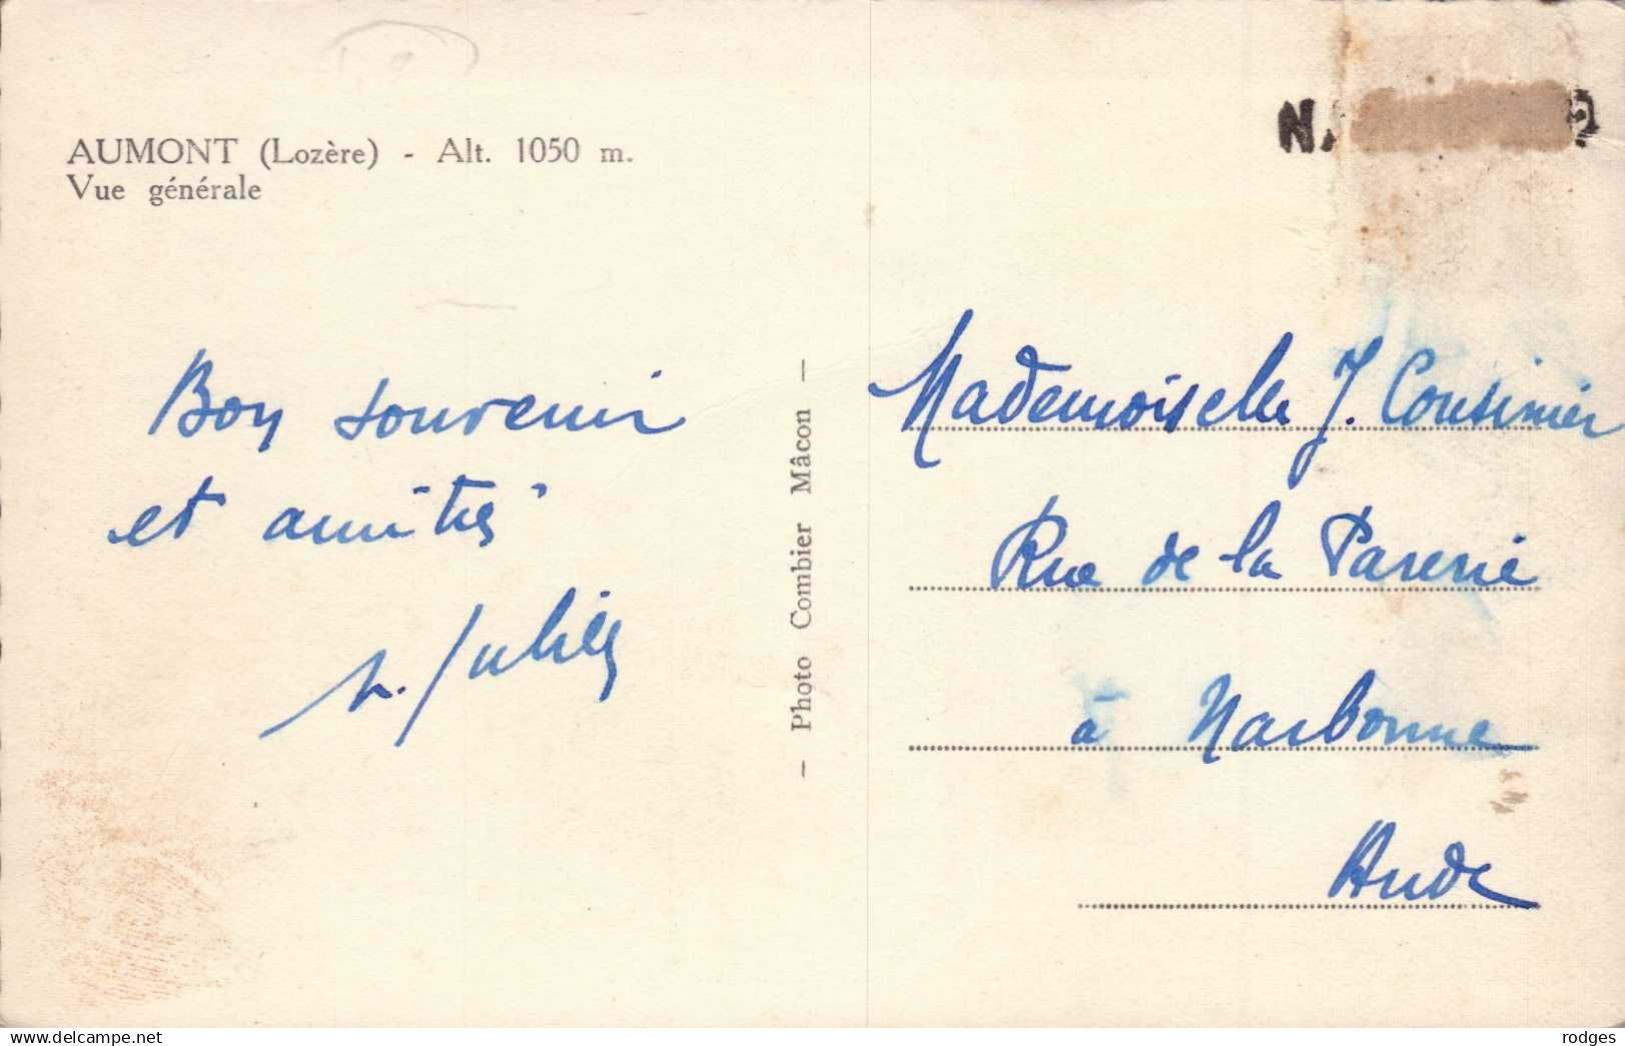 AUMONT (Lozère) - Alt. 1050 m.
Vue générale
Bon souvenir
et amitiés
- Photo Combier Mâcon -
Mademoiselle J. Cousinier
Rue de la Parerie
à Narbonne
Aude
delcampe.net
rodges